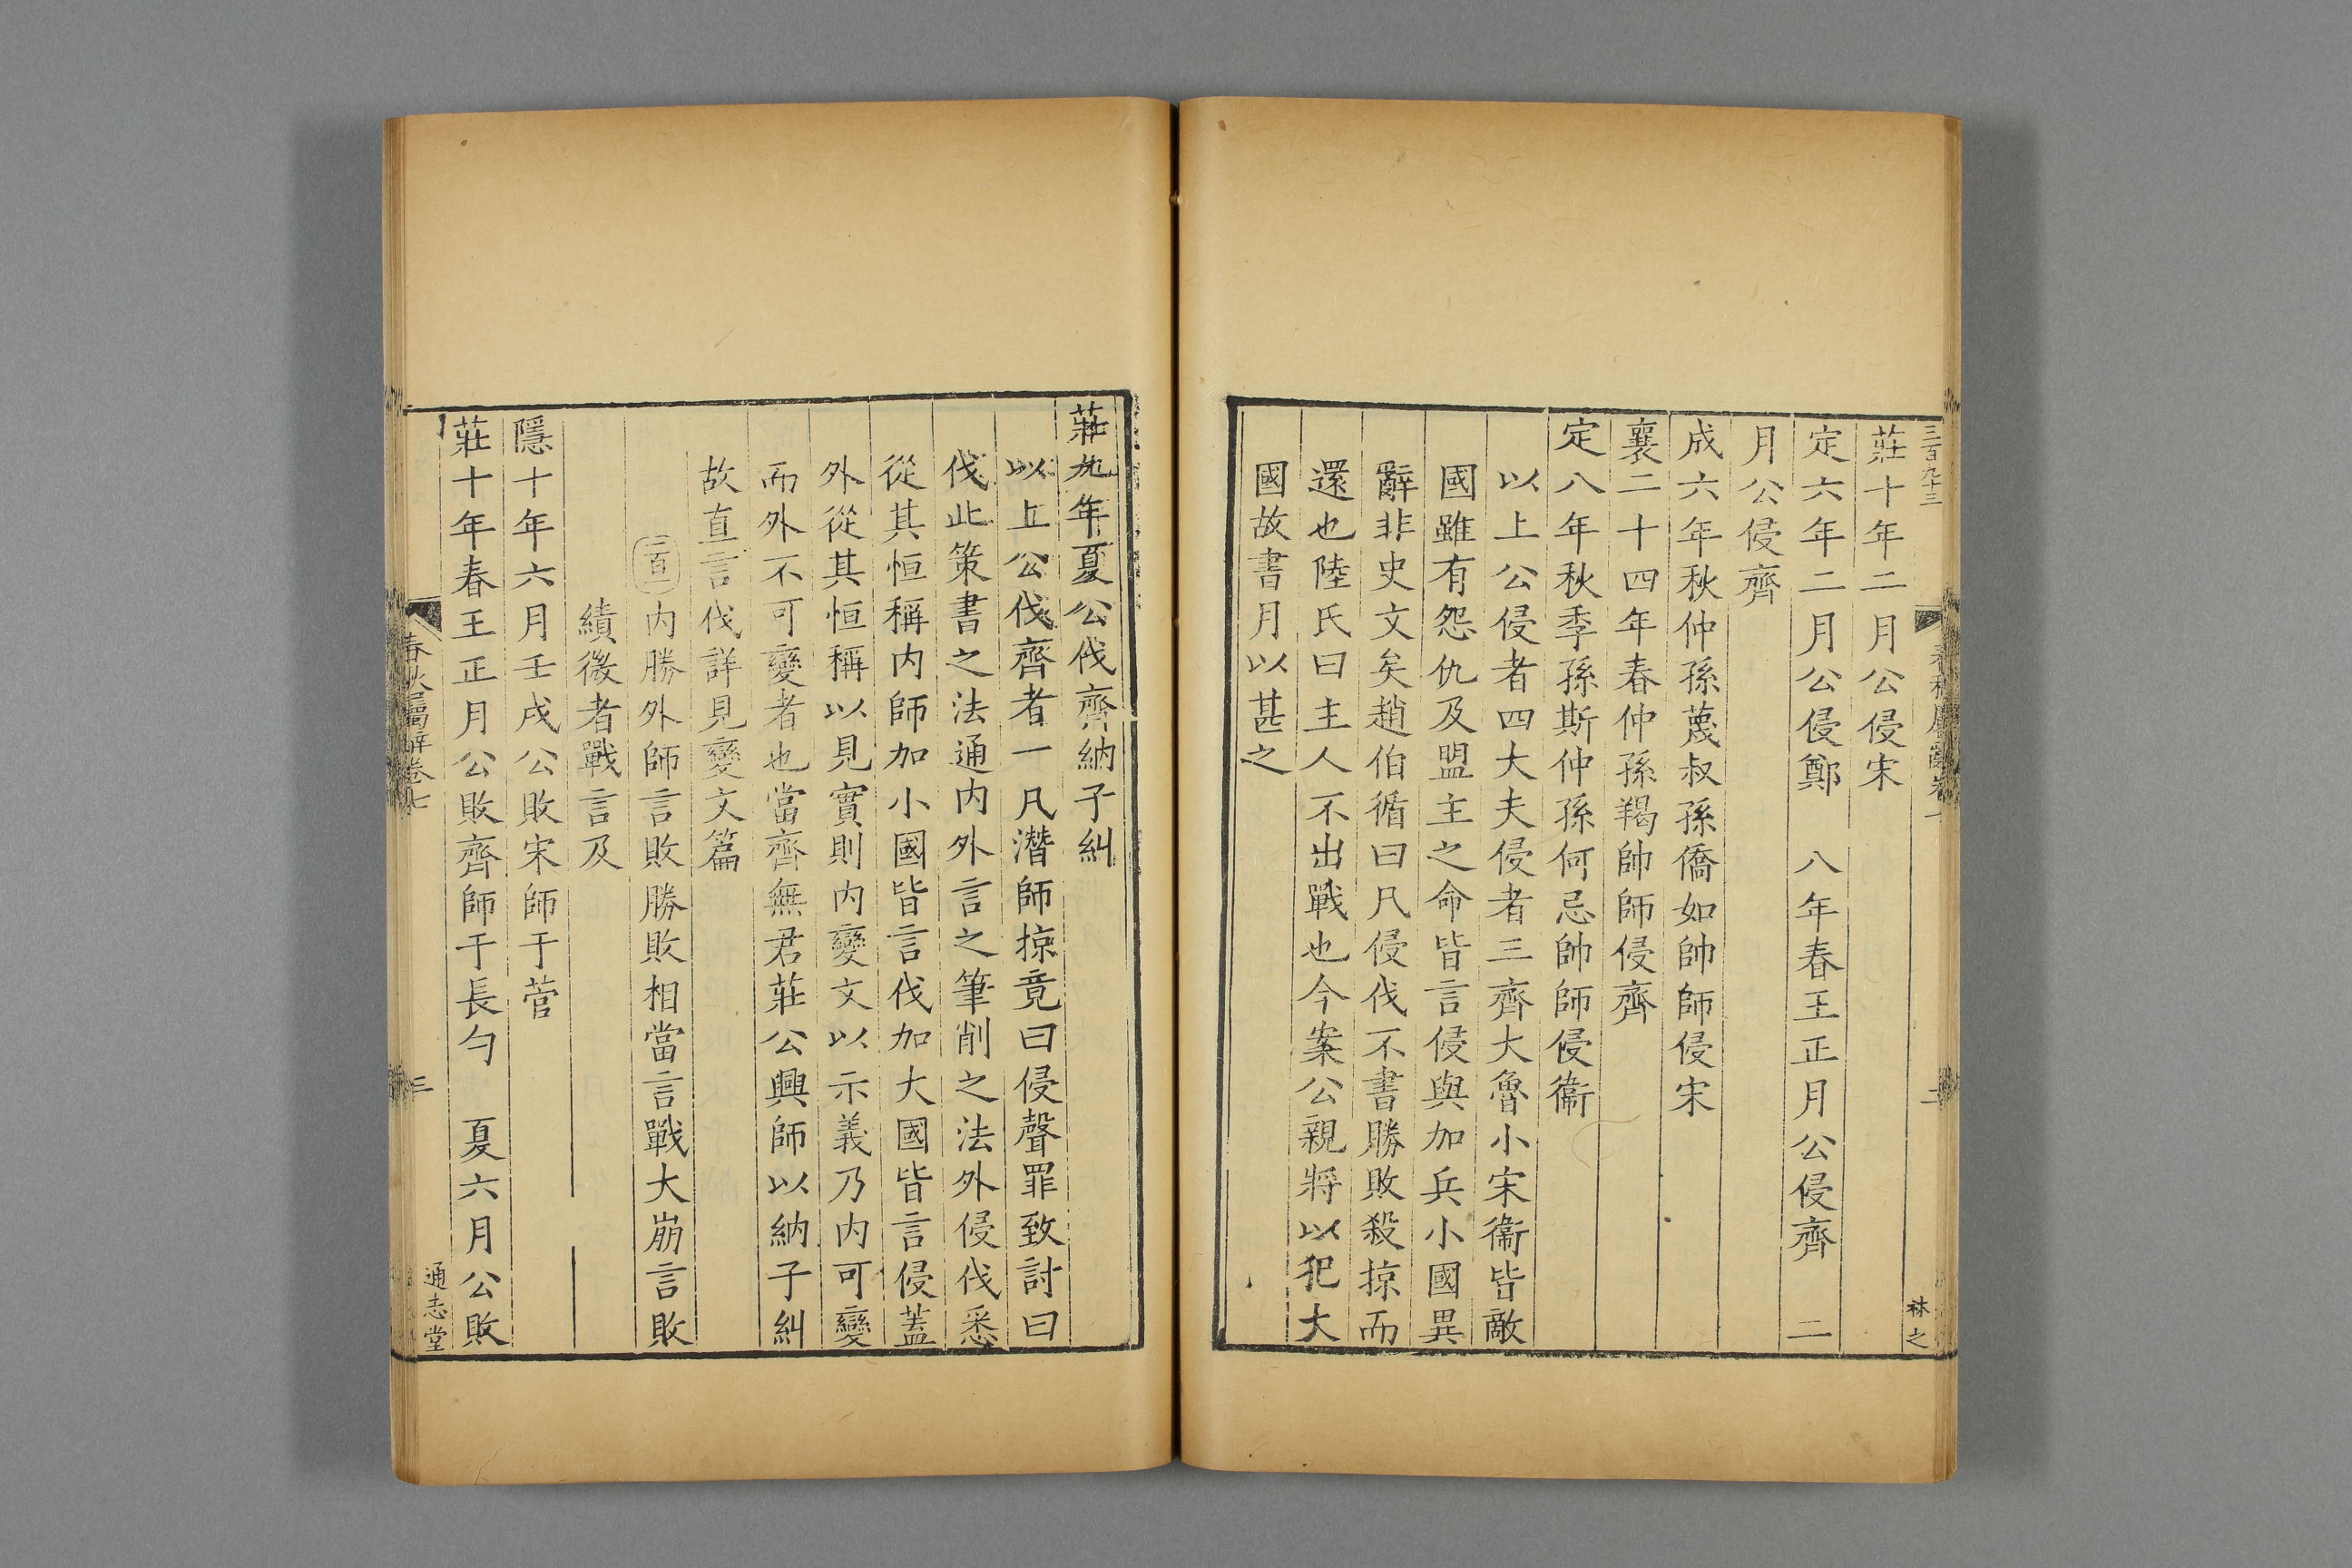 三百九十三
莊十年二月公侵宋
定六年二月公侵鄭　八年春王正月公侵齊　二
月公侵齊
成六年秋仲孫蔑叔孫僑如帥師侵宋
襄二十四年春仲孫羯帥師侵齊
定八年秋季孫斯仲孫何忌帥師侵衞
以上公侵者四大夫侵者三齊大魯小宋衞皆敵
國雖有怨仇及盟主之命皆言侵與加兵小國異
辭非史文矣趙伯循曰凡侵伐不書勝敗殺掠而
還也陸氏曰主人不出戰也今案公親將以犯大
國故書月以甚之
林之
莊九年夏公伐齊納子糾
以上公伐齊者一凡潛師掠竟曰侵聲罪致討曰
伐此策書之法通内外言之筆削之法外侵伐悉
從其恒稱内師加小國皆言伐加大國皆言侵蓋
外從其恒稱以見實則内變文以示義乃内可變
而外不可變者也當齊無君莊公興師以納子糾
故直言伐詳見變文篇
三百一内勝外師言敗勝敗相當言戰大崩言敗
績微者戰言及
隱十年六月壬戌公敗宋師于菅
莊十年春王正月公敗齊師于長勺　夏六月公敗
春秋屬辭卷七
三
通志堂